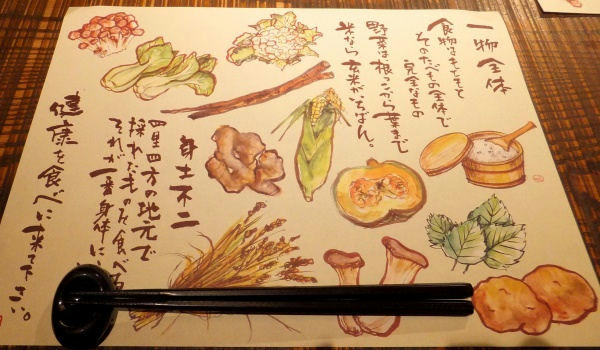 一物全体
食物はもともと
そのたべもの全体で
完全なもの
野菜は根っこから葉まで
米なら玄米がいちばん。
身土不二
四里四方の地元で
採れたものを食べる
それが一番身体に
健康を食べに来て下さい。